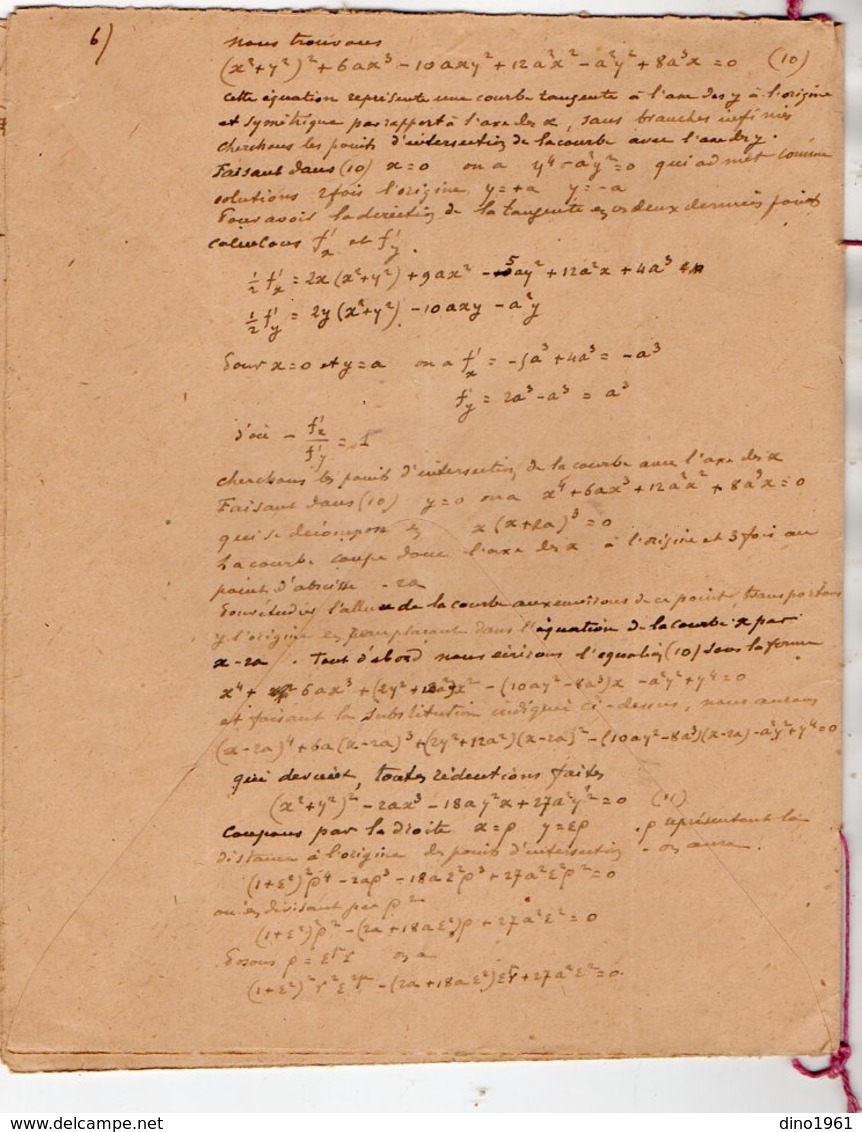 6)
nous trouvons
(x²+y²)² + 6ax³ - 10axy² + 12a²x² - a²y² + 8a³x = 0 (10)
Cette équation représente une courbe tangente à l'axe des y à l'origine
et symétrique par rapport à l'axe des x, sans branches infinies
cherchons les points d'intersection de la courbe avec l'axe des y.
Faisant dans (10) x=0 on a y⁴ - a²y² = 0 qui admet comme
solutions 2 fois l'origine y = +a y = -a
Pour avoir la direction de la tangente en ces deux derniers points
calculons f'x et f'y.
½ f'x = 2x(x²+y²) + 9ax² - 5ay² + 12a²x + 4a³
½ f'y = 2y(x²+y²) - 10axy - a²y
Pour x=0 et y=a on a f'x = -5a³ + 4a³ = -a³
f'y = 2a³ - a³ = a³
d'où - f'x/f'y = 1
cherchons les points d'intersection de la courbe avec l'axe des x
Faisant dans (10) y=0 on a x⁴ + 6ax³ + 12a²x² + 8a³x = 0
qui se décompose en x(x+2a)³ = 0
La courbe coupe donc l'axe des x à l'origine et 3 fois au
point d'abscisse -2a
Pour étudier l'allure de la courbe aux environs de ce point, transportons
y l'origine en remplaçant dans l'équation de la courbe x par
x-2a. Tout d'abord nous écrivons l'équation (10) sous la forme
x⁴ + 6ax³ + (2y²+12a²)x² - (10ay²-8a³)x - a²y² + y⁴ = 0
et faisant la substitution indiquée ci-dessus, nous aurons
(x-2a)⁴ + 6a(x-2a)³ + (2y²+12a²)(x-2a)² - (10ay²-8a³)(x-2a) - a²y² + y⁴ = 0
qui devient, toutes réductions faites
(x²+y²)² - 2ax³ - 18ay²x + 27a²y² = 0 (11)
Coupons par la droite x=ρ y=ερ. ρ représentant la
distance à l'origine des points d'intersection - on aura.
(1+ε²)²ρ⁴ - 2aρ³ - 18aε²ρ³ + 27a²ε²ρ² = 0
ou en divisant par ρ²
(1+ε²)²ρ² - (2a+18aε²)ρ + 27a²ε² = 0
Posons ρ = εʳr on a
(1+ε²)²r²ε²ʳ - (2a+18aε²)εʳr + 27a²ε² = 0
dino1961